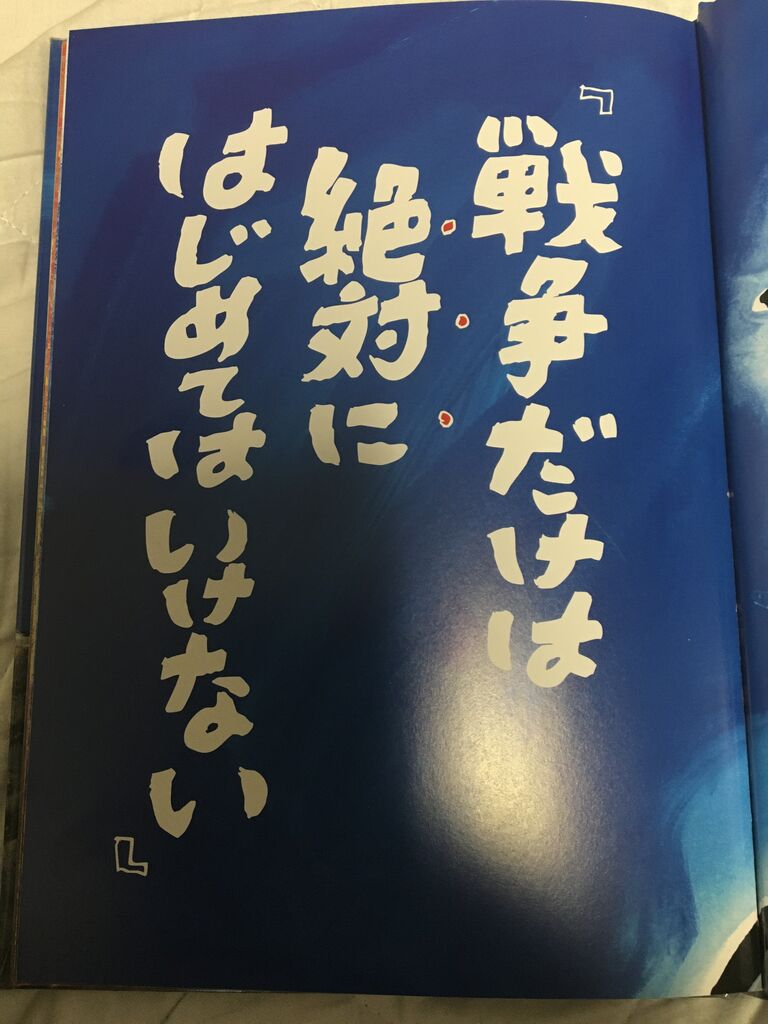 『戦争だけは
絶対に
はじめてはいけない』